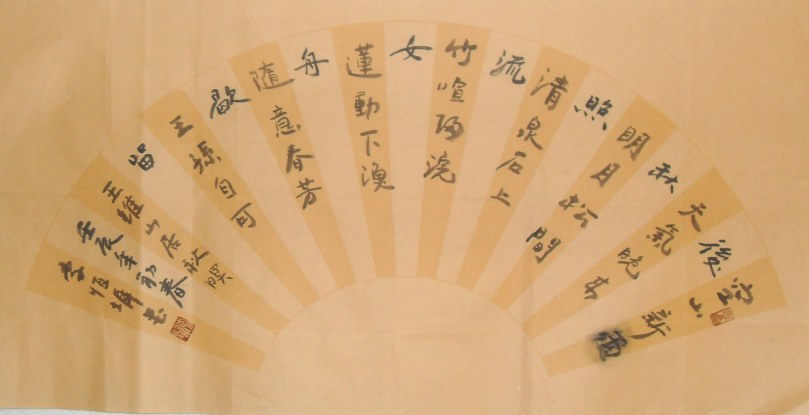 空山新雨
後
天氣晚來
秋
明月松間
照
清泉石上
流
竹喧歸浣
女
蓮動下漁
舟
隨意春芳
歇
王孫自可
留
王維山居秋暝
壬辰年初春
李恒